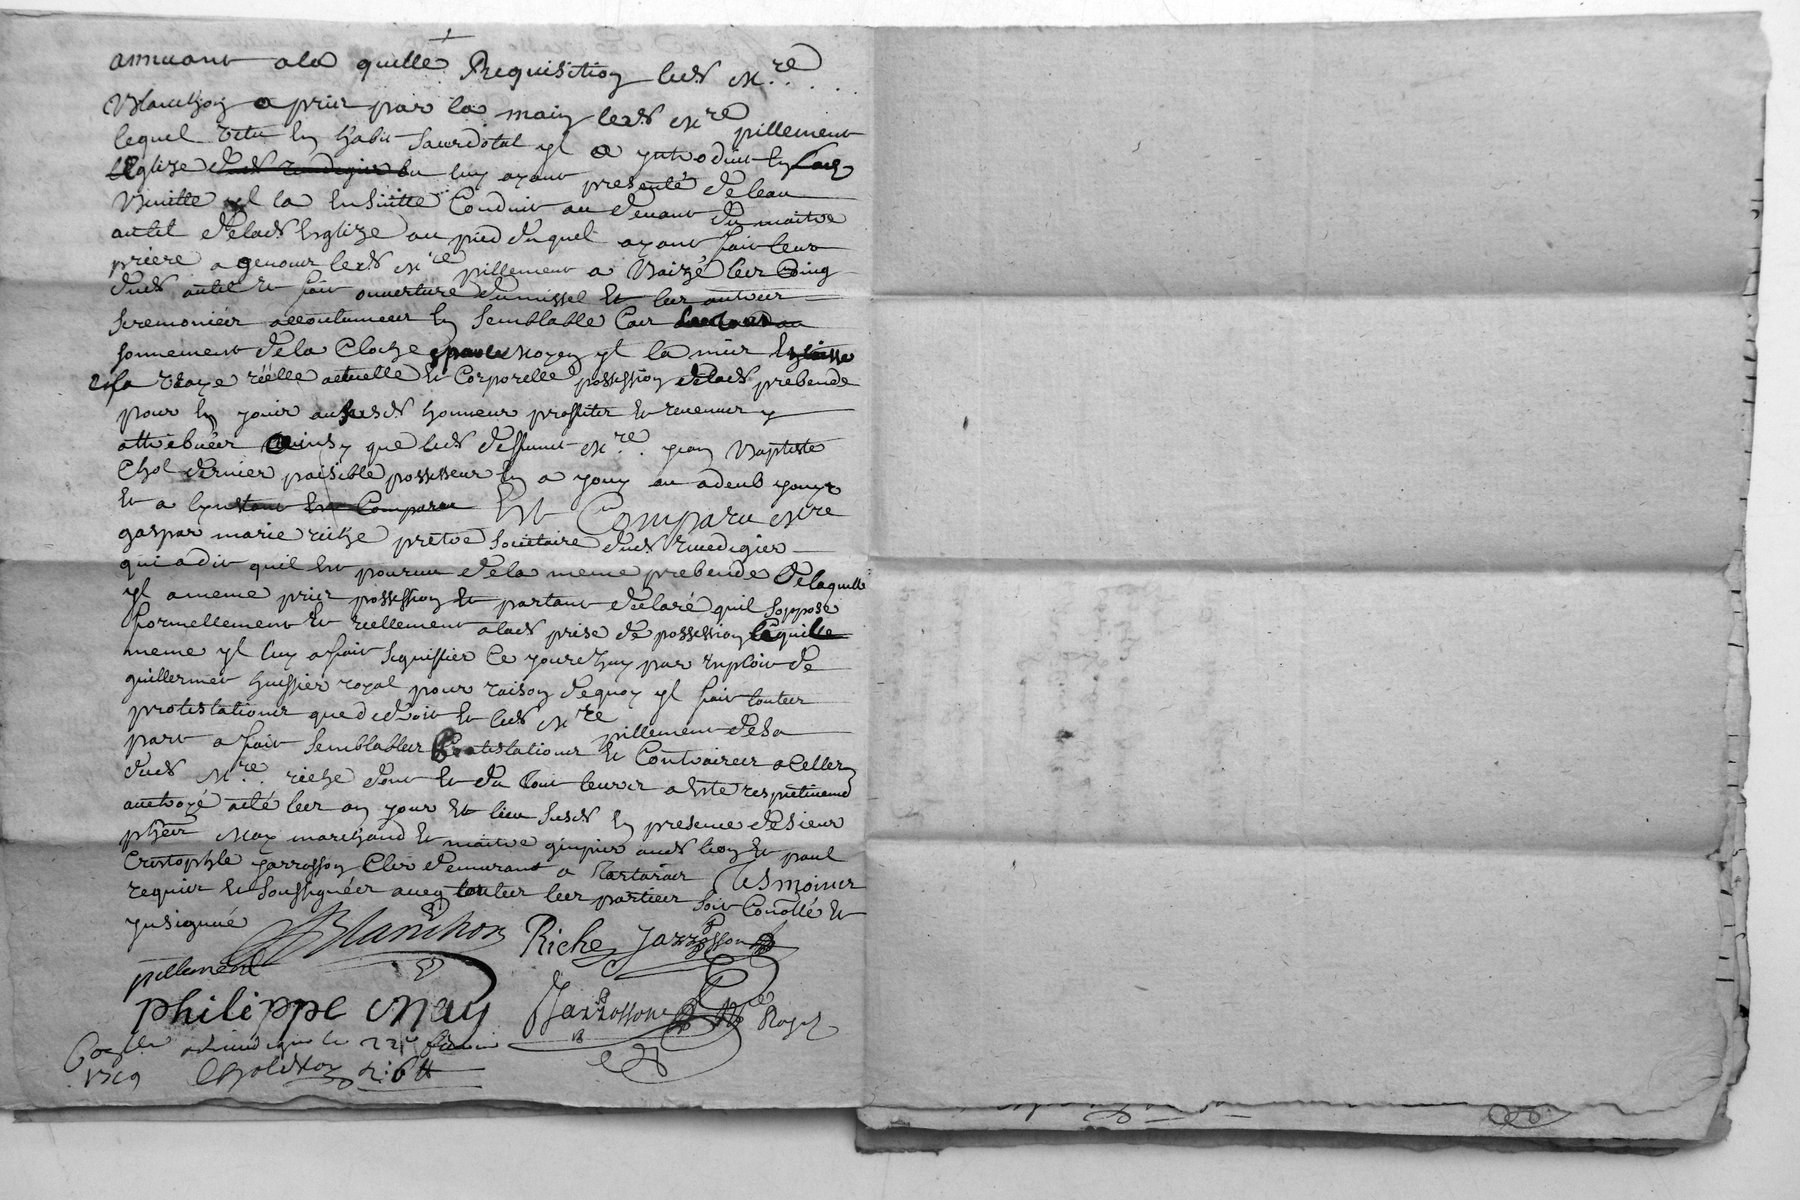 a la quelle Requisition led. Mre.
Blanchon a pris par la main led. Mre pillement
lequel vetu en habit sacerdotal yl a yntroduit en lad.
Eglize luy ayant presenté de leau
Benitte yl la ensuitte Conduit au devant du maitre
autel delad. Esglize au pied duquel ayant fait leur
priere a genoux led. Mre pillement a Baizé les Coings
dud. autel et fait ouverture du missel et les autres
seremonies accoutumees en semblable Cas
sonnement de la Cloche moyen yl la mis
en la vraye réélle actuelle et Corporelle possession delad. prebende
pour en jouir aux susd. honneurs proffits et revenus y
attribuées ainsy que led. deffunt Mre. jean Baptiste
Chol dernier paisible possesseur en a jouy ou a deub jouyr
et a Est Comparu Mre
gaspar marie riche prêtre societaire dud.
qui a dit quil est pourveu de la meme prebende de laquelle
yl a meme pris possession et partant déclaré quil soppose
formellement et réellement a lad. prise de possession laquelle
meme yl luy a fait signiffier ce jourdhuy par exploit de
guillermet huissier royal pour raison dequoy yl fait toutes
protestations que de droit et led. Mre pillement de sa
part a fait semblables protestations et Contraires a Celles
dud. Mre. riche dont et du tout leurs a esté respectivement
auttroyé acte les an jour et lieu susd. en presence de sieur
May marchand et maitre aud. lieu et paul
Cristophle jarrosson Clerc demurant a Tarare Tesmoins
requis et soussignées avec toutes les parties soit Conollé et
ynsignué
Blanchon Riche Jarrosson
pillement
philippe May Jarrosson Nre Royal
le 22e
1769 2: 6 ll